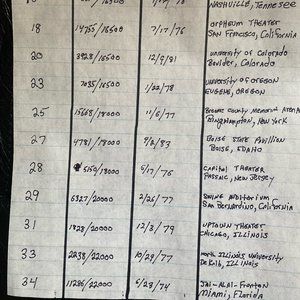 NASHVILLE, TENNESEE
18 14755/16500 7/17/76 ORPHEUM THEATER
SAN FRANCISCO, CALIFORNIA
20 3928/16500 12/9/81 UNIVERSITY OF COLORADO
BOULDER, COLORADO
23 7035/16500 1/22/78 UNIVERSITY OF OREGON
EUGENE, OREGON
25 15668/18000 11/6/77 BROOME COUNTY MEMORIAL ARENA
BINGHAMPTON, NEW YORK
27 4781/18000 9/2/83 BOISE STATE PAVILLION
BOISE, IDAHO
28 5150/18000 6/17/76 CAPITOL THEATER
PASSAIC, NEW JERSEY
29 6327/20000 2/26/77 SWING AUDITORIUM
SAN BERNARDINO, CALIFORNIA
31 1828/20000 12/3/79 UPTOWN THEATER
CHICAGO, ILLINOIS
33 2238/22000 10/29/77 NORTH ILLINOIS UNIVERSITY
DeKALB, ILLINOIS
34 11286/22000 6/23/74 JAI-ALAI-FRONTON
MIAMI, FLORIDA